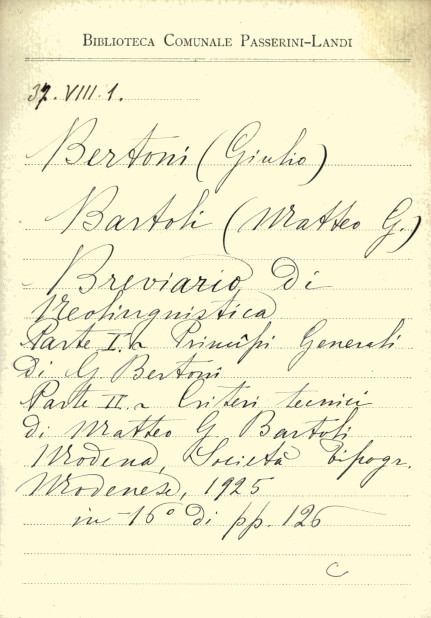 BIBLIOTECA COMUNALE PASSERINI-LANDI
37.VIII.1.
Bertoni (Giulio)
Bartoli (Matteo G.)
Breviario di
Neolinguistica
Parte I.a Princîpi Generali
di G. Bertoni
Parte II.a Criteri tecnici
di Matteo G. Bartoli
Modena, Società Tipogr.
Modenese, 1925
in-16° di pp. 126
C